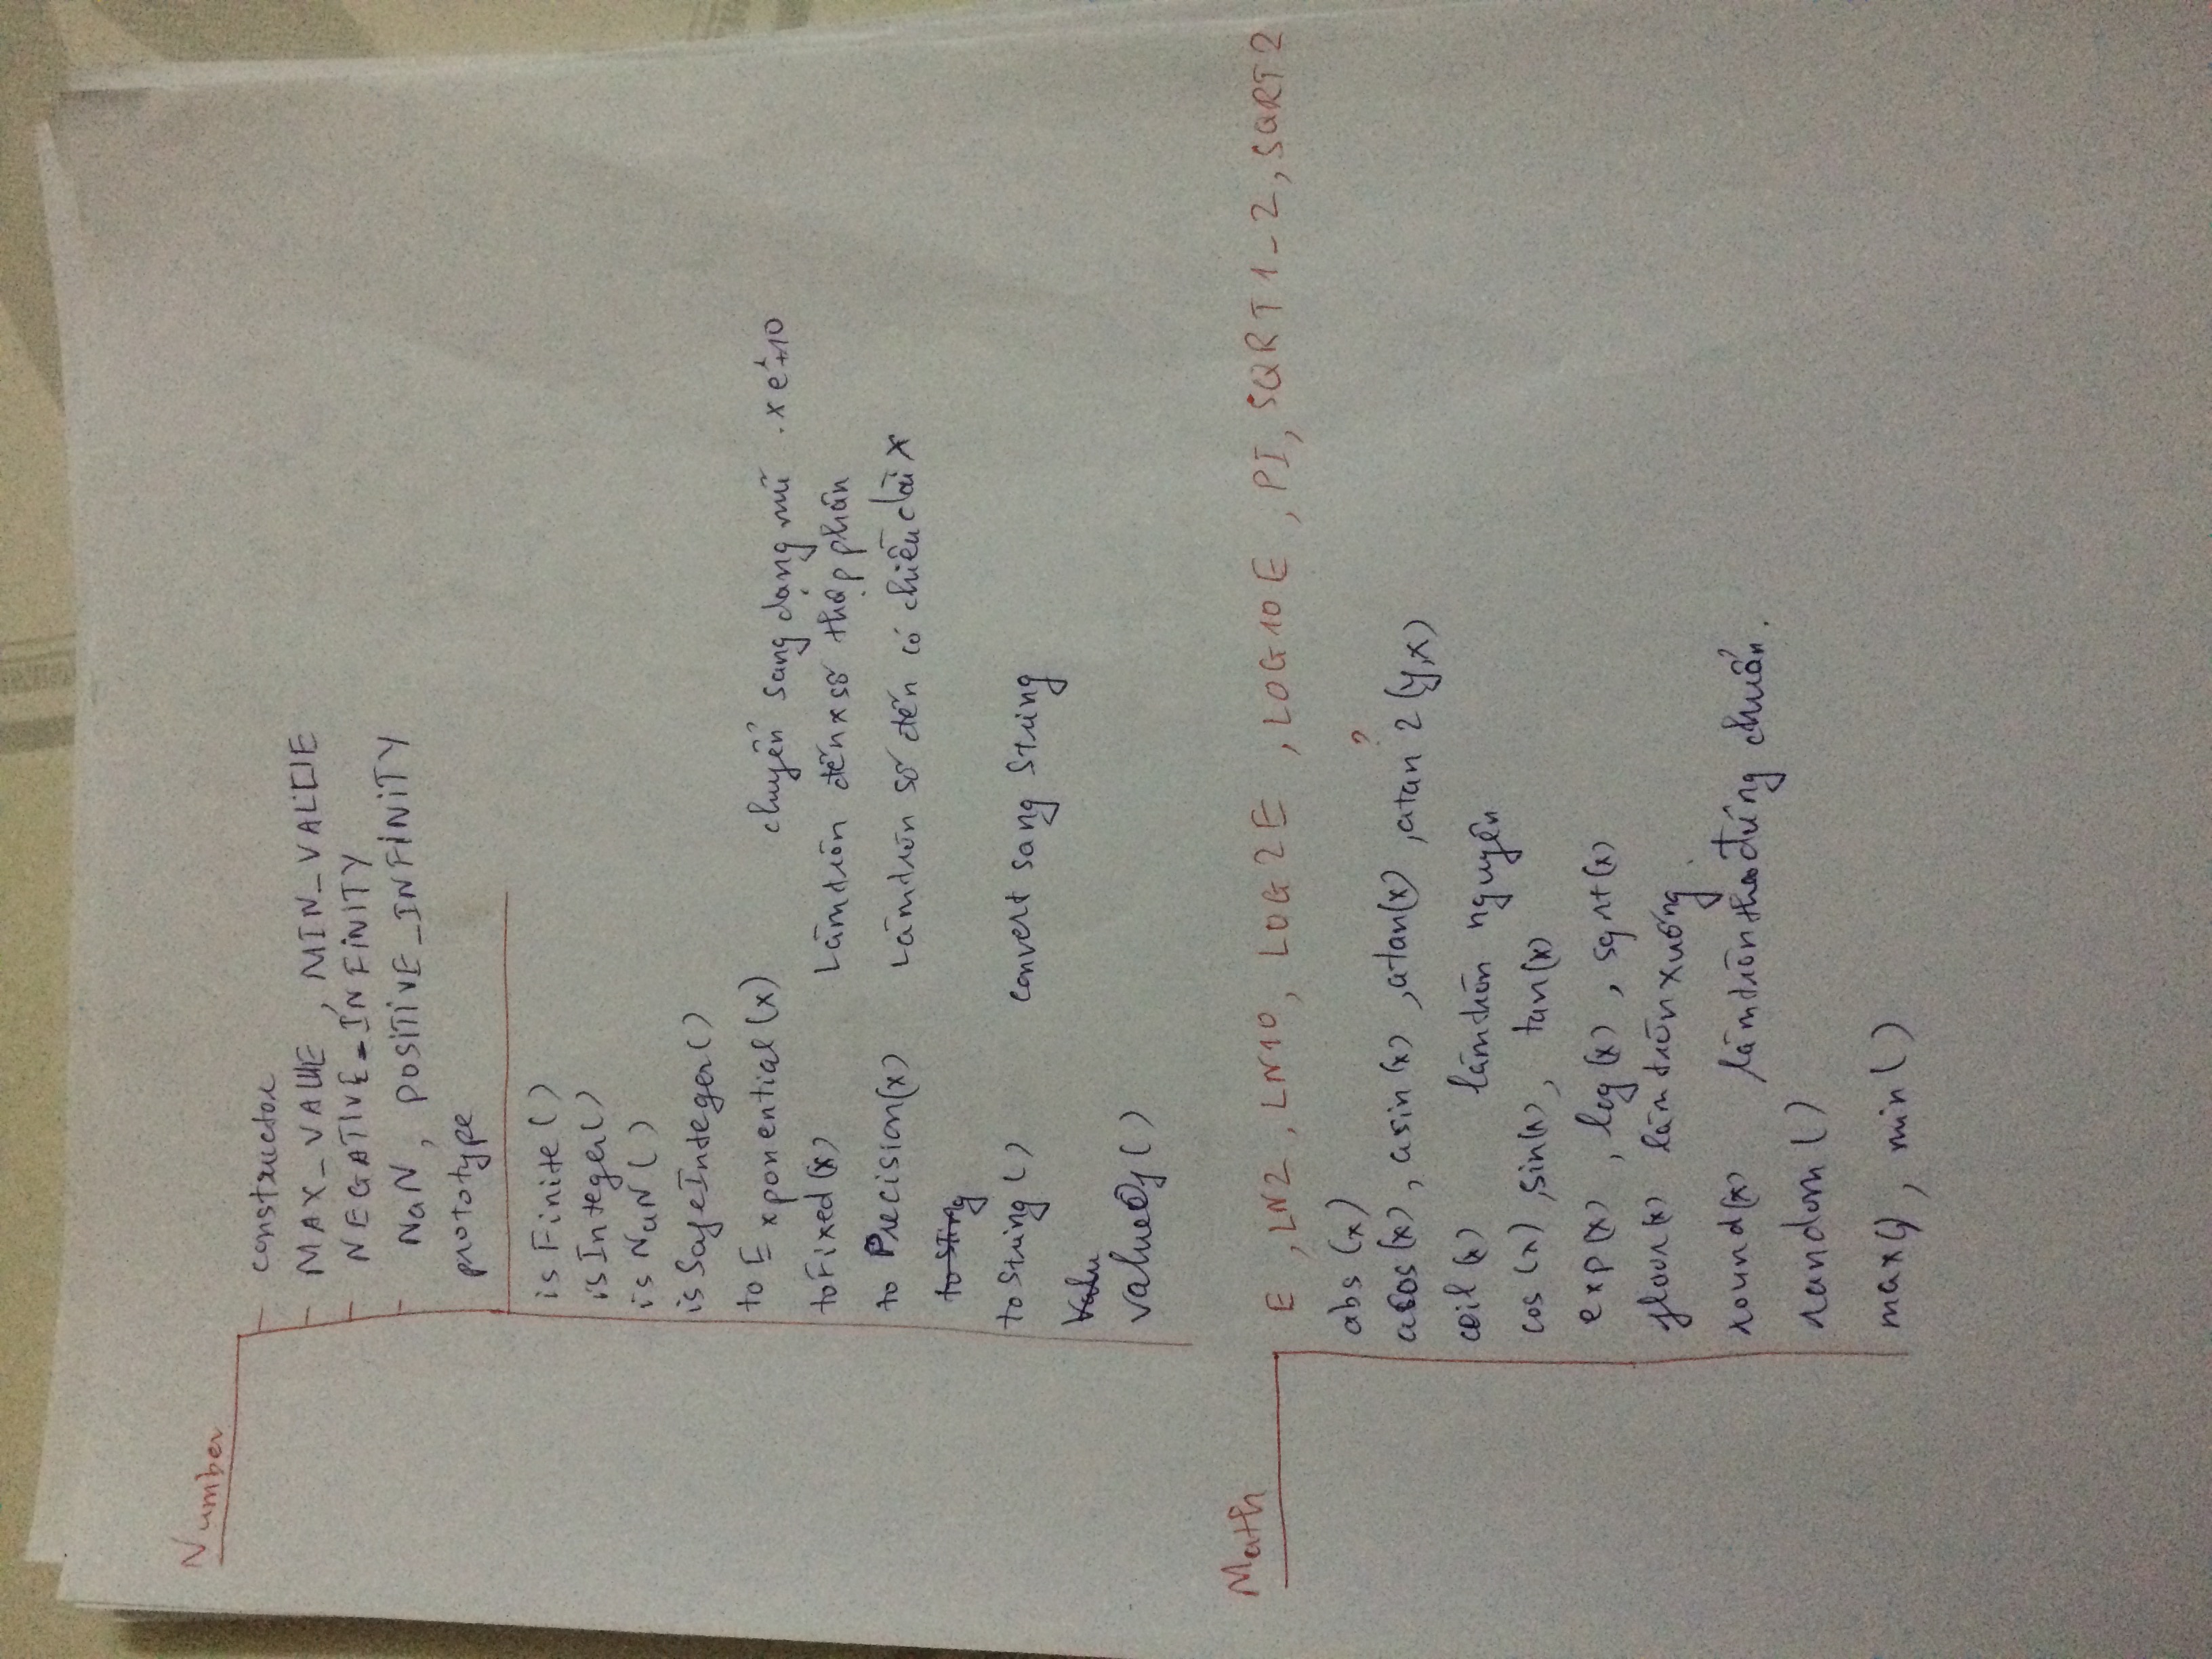 Number
constructor
MAX_VALUE, MIN_VALUE
NEGATIVE_INFINITY
NaN, POSITIVE_INFINITY
prototype
isFinite()
isInteger()
isNaN()
isSafeInteger()
toExponential(x) chuyển sang dạng mũ .x e+10
toFixed(x) Làm tròn đến x số thập phân
toPrecision(x) Làm tròn số đến có chiều dài x
toString() convert sang String
valueOf()
Math
E, LN2, LN10, LOG2E, LOG10E, PI, SQRT1_2, SQRT2
abs(x)
?
acos(x), asin(x), atan(x), atan2(y,x)
ceil(x) làm tròn nguyên
cos(x), sin(x), tan(x)
exp(x), log(x), sqrt(x)
floor(x) làm tròn xuống.
round(x) làm tròn theo đúng chuẩn.
random()
max(), min()